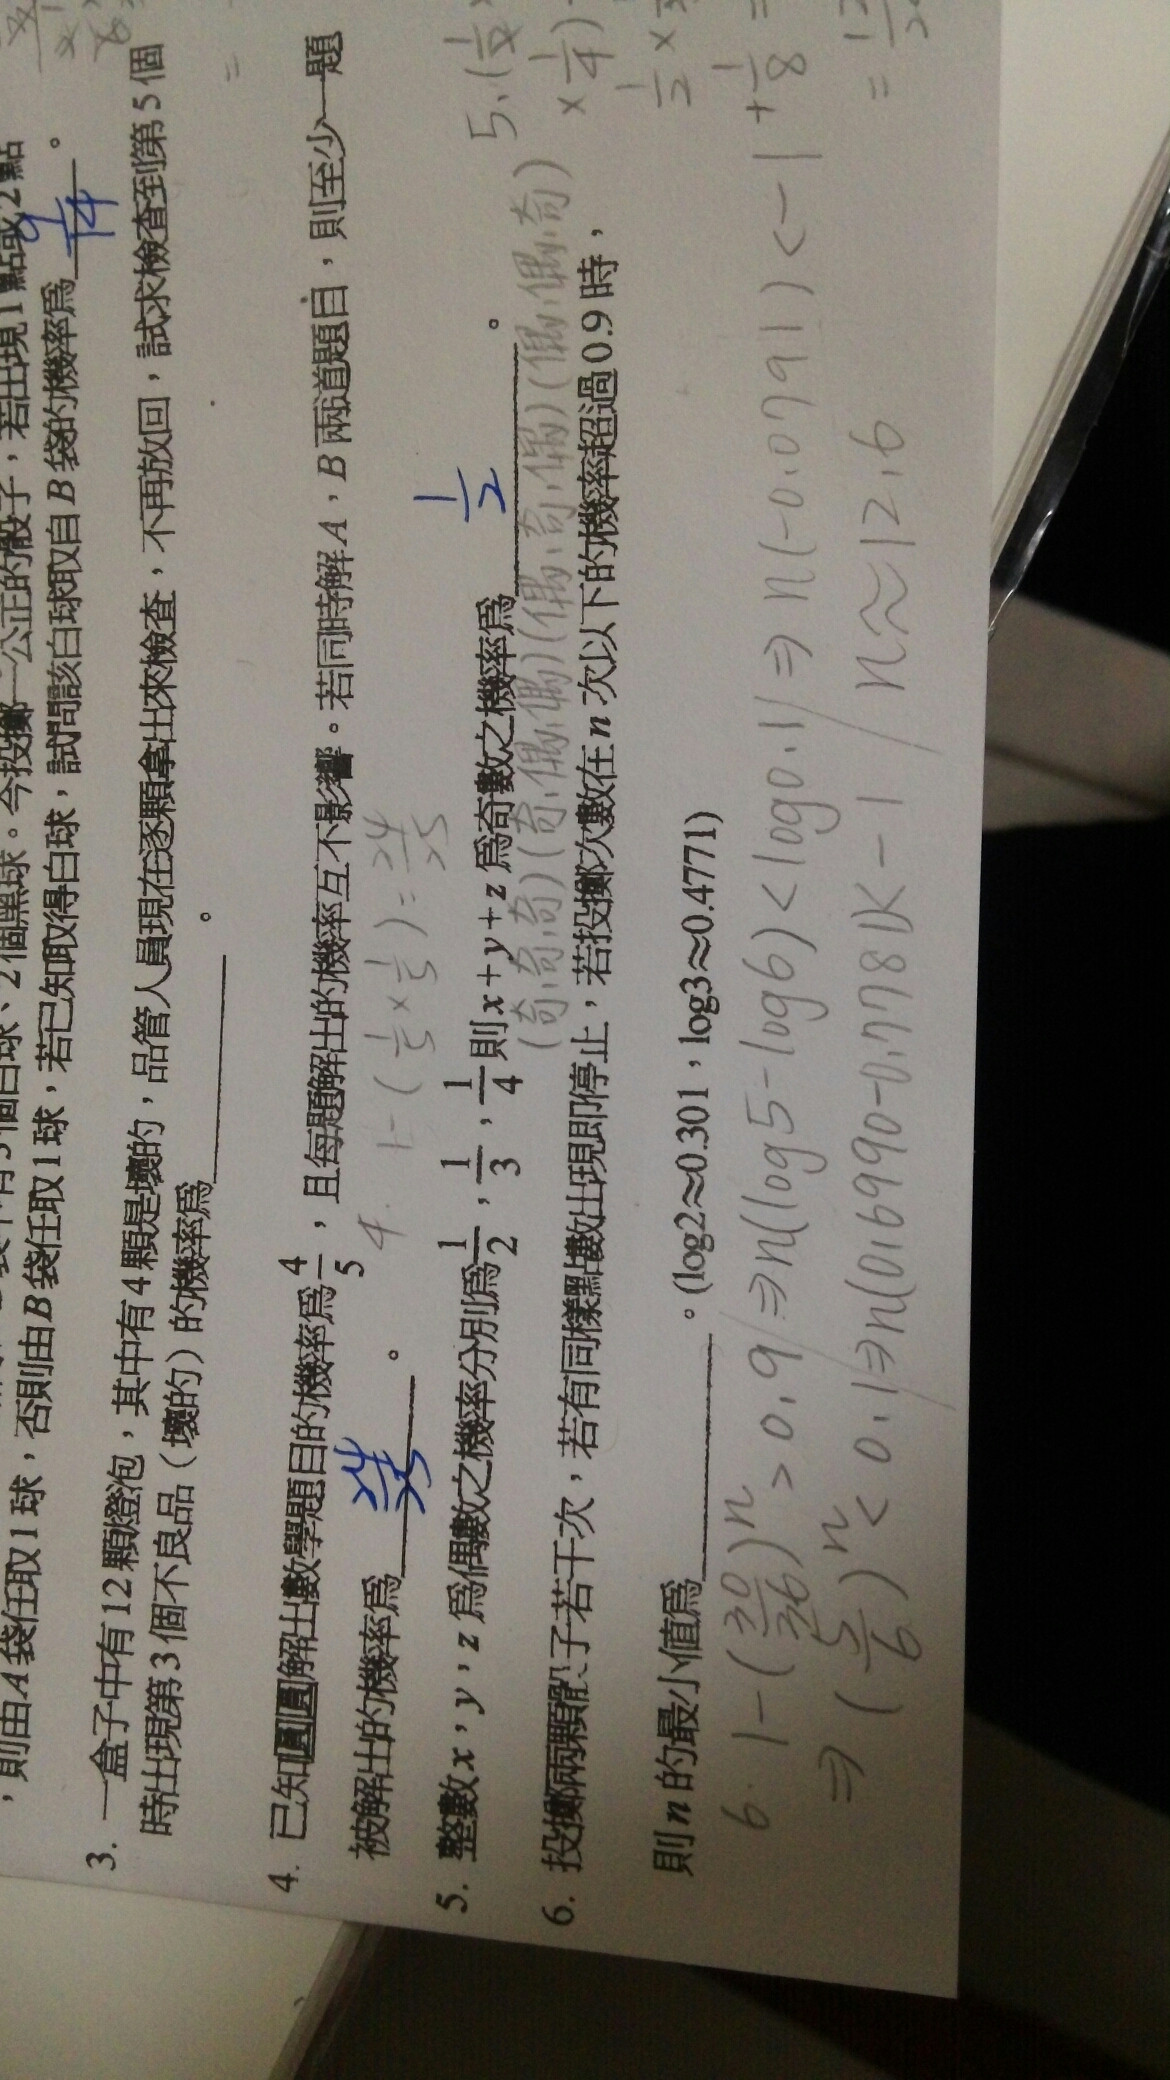 ，則由A袋任取1球，否則由B袋任取1球，若已知取得白球，試問該白球取自B袋的機率為 9/14 。
3. 一盒子中有12顆燈泡，其中有4顆是壞的，品管人員現在逐顆拿出來檢查，不再放回，試求檢查到第5個
時出現第3個不良品（壞的）的機率為 。
4. 已知圓圓解出數學題目的機率為4/5，且每題解出的機率互不影響。若同時解A，B兩道題目，則至少一題
被解出的機率為 24/25 。
4. 1-(1/5×1/5)=24/25
5. 整數x，y，z為偶數之機率分別為1/2，1/3，1/4則x+y+z為奇數之機率為 1/2 。
(奇,奇,奇)(奇,偶,偶)(偶,奇,偶)(偶,偶,奇)
6. 投擲兩顆骰子若干次，若有同樣點數出現即停止，若投擲次數在n次以下的機率超過0.9時，
則n的最小值為 。(log2≈0.301，log3≈0.4771)
6. 1-(30/36)^n>0.9/⇒n(log5-log6)<log0.1/⇒n(-0.0791)<-1
⇒(5/6)^n<0.1/⇒n(0.6990-0.7781)<-1/n≈12.6